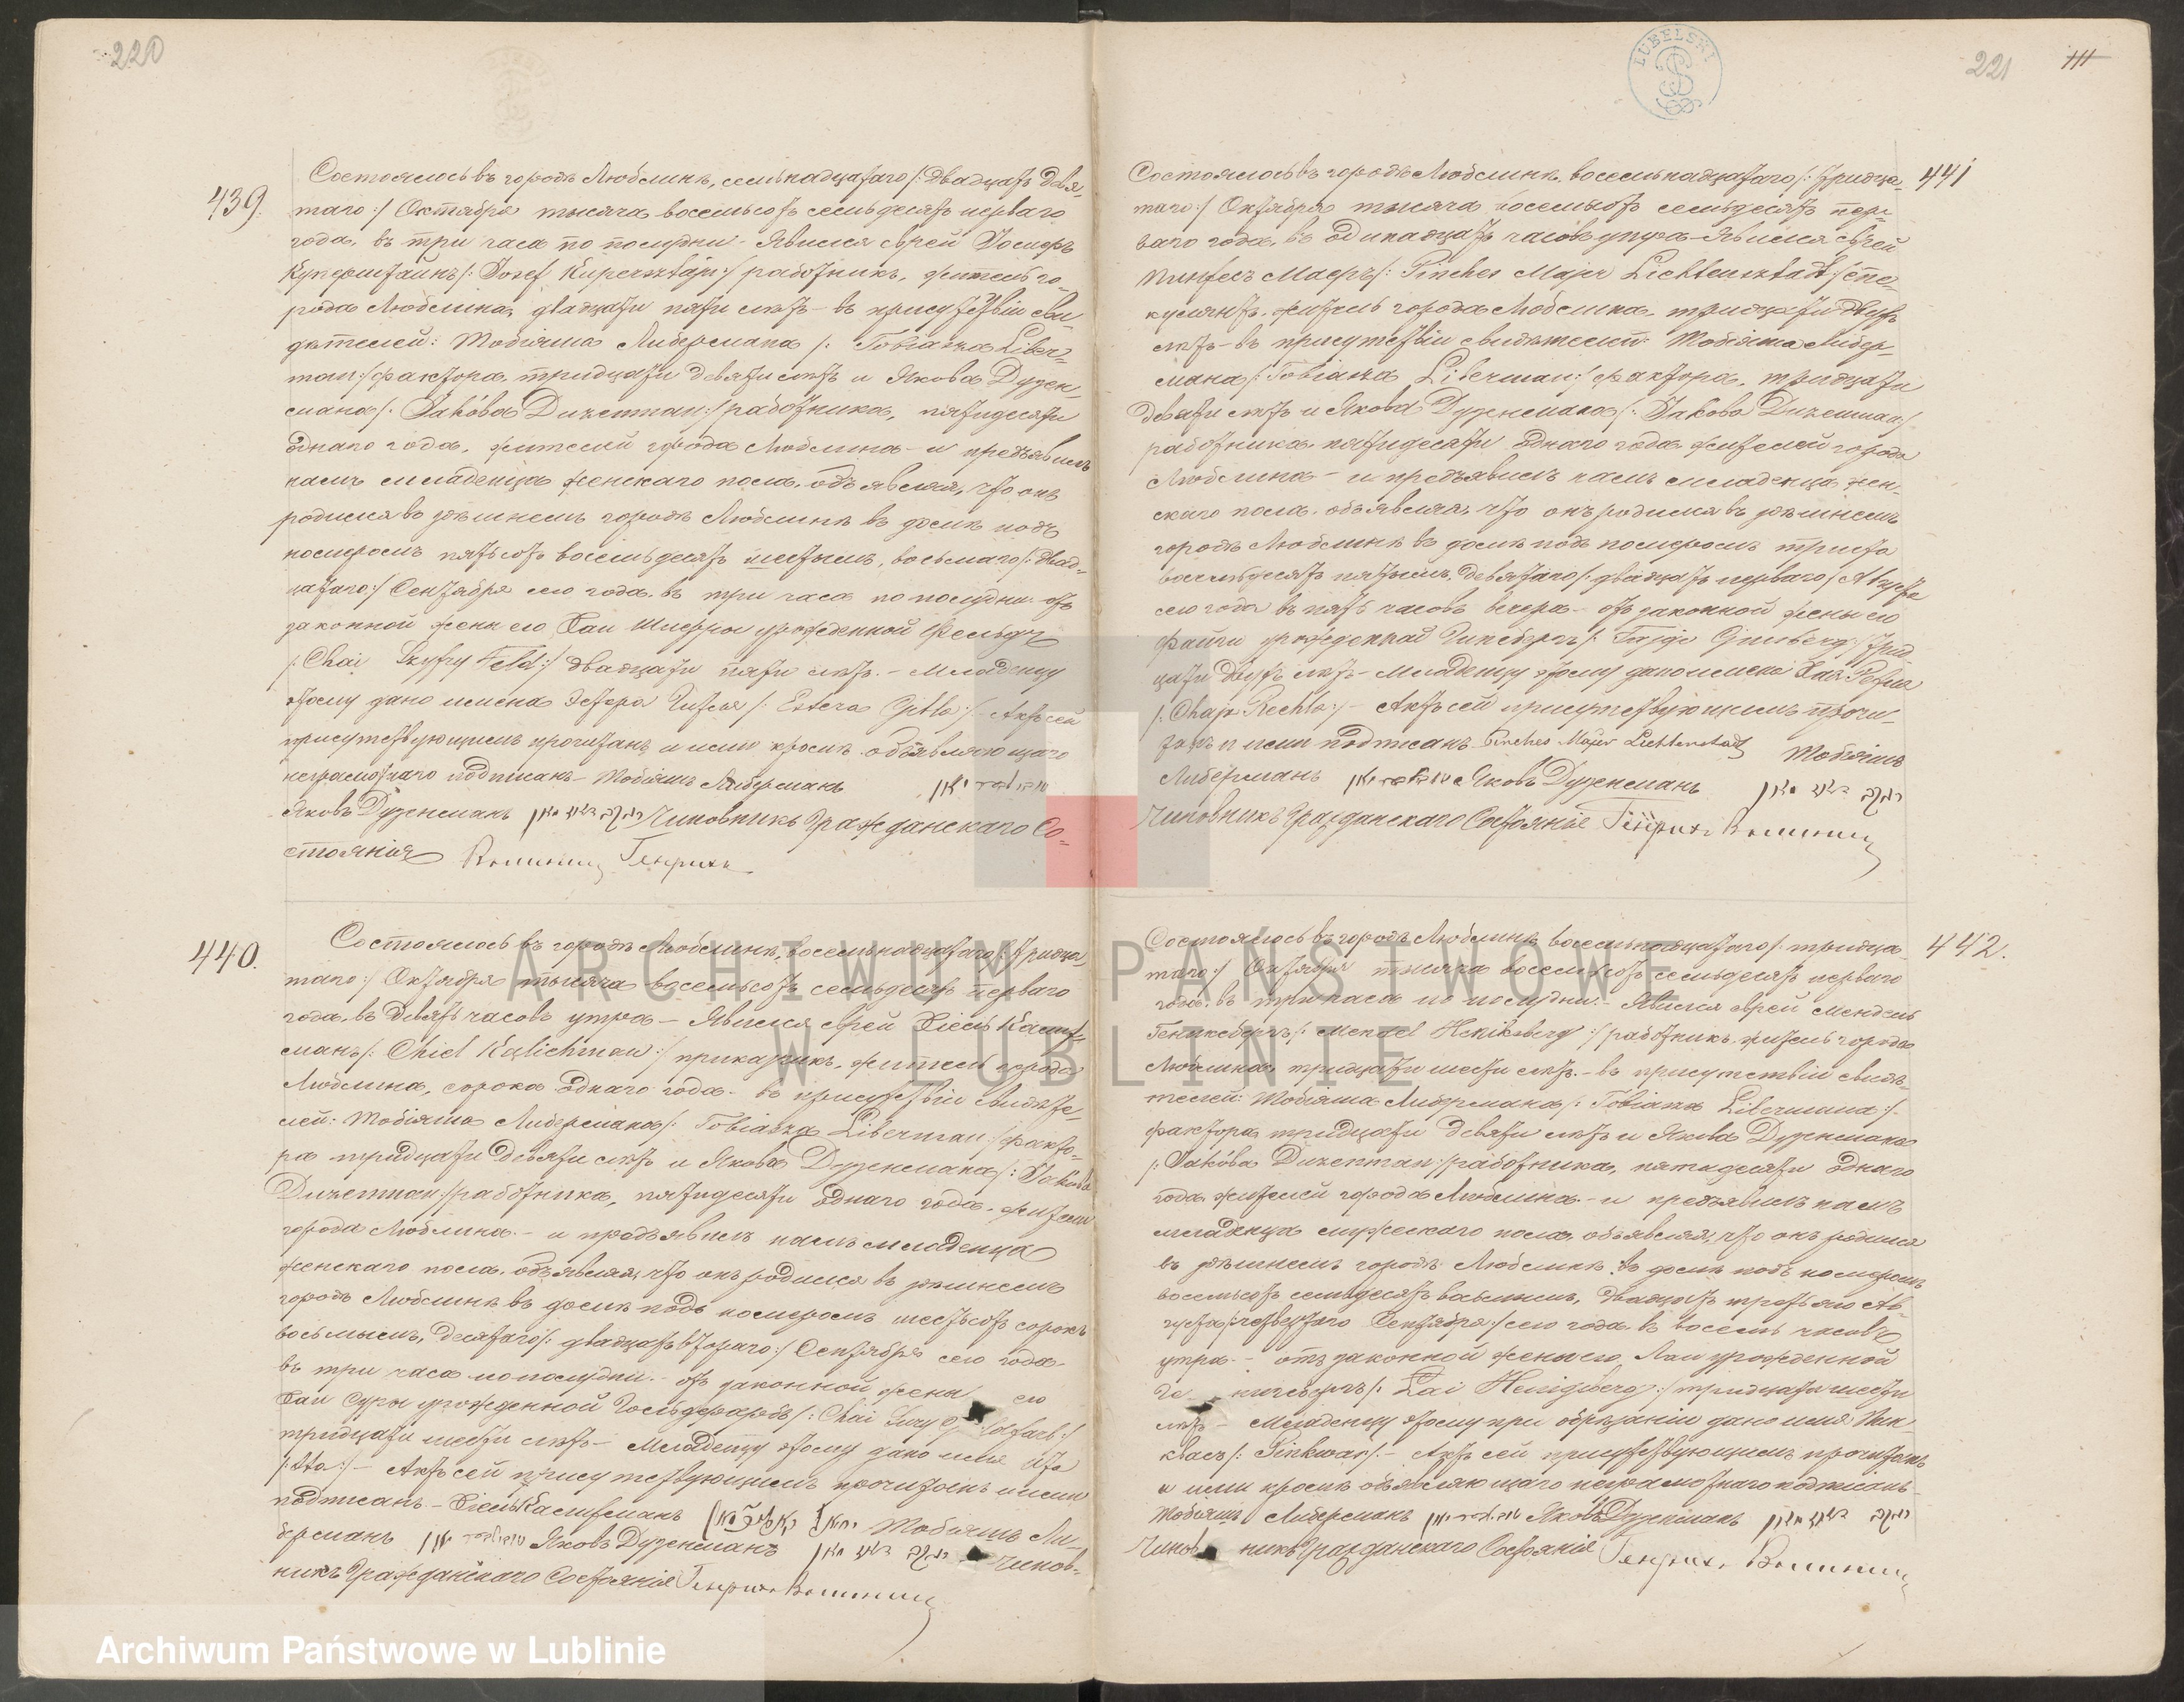 220
439.
Состоялось въ городѣ Люблинѣ, семьнадцатаго /: двадцать девя-
таго :/ Октября тысяча восемьсотъ семьдесятъ перваго
года, въ три часа по полудни – Явился еврей Іосифъ
Куперштайнъ /: Josef Kupersztájn :/ работникъ, житель го-
рода Люблина, двадцати пяти лѣтъ – въ присутствіи сви-
дѣтелей: Тобіяша Либермана /: Tobiasza Liber-
man :/ фактора, тридцати девяти лѣтъ и Якова Дузен-
мана /: Jakóba Duzenman :/ работника, пятидесяти
однаго года, жителей города Люблина – и предъявилъ
намъ младенца женскаго пола, объявляя, что онъ
родился въ здѣшнемъ городѣ Люблинѣ въ домѣ подъ
номеромъ пятьсотъ восемьдесятъ шестымъ, восьмаго /: двад-
цатаго :/ Сентября сего года, въ три часа по полудни отъ
законной жены его Хаи Шифры урожденной Фельдъ
/: Chai Szyfry Feld :/ двадцати пяти лѣтъ. – Младенцу
этому дано имена Эстера Гитля /: Estera Gitla :/ – Актъ сей
присутствующимъ прочитанъ и ими кромѣ объявляющаго
неграмотнаго подписанъ – Тобіяшъ Либерманъ
Яковъ Дузенманъ Чиновникъ Гражданскаго Со-
стоянія Генрихъ
440.
Состоялось въ городѣ Люблинѣ, восемьнадцатаго /: тридца-
таго :/ Октября тысяча восемьсотъ семьдесятъ перваго
года, въ девять часовъ утра – Явился еврей Хіель Калих-
манъ /: Chiel Kalichman :/ прикащикъ, житель города
Люблина, сорока однаго года – въ присутствіи свидѣте-
лей: Тобіяша Либермана /: Tobiasza Liberman :/ факто-
ра тридцати девяти лѣтъ и Якова Дузенмана /: Jakóba
Duzenman :/ работника, пятидесяти однаго года, жителей
города Люблина. – и предъявилъ намъ младенца
женскаго пола, объявляя, что онъ родился въ здѣшнемъ
городѣ Люблинѣ въ домѣ подъ номеромъ шестьсотъ сорокъ
восьмымъ, десятаго /: двадцать втораго :/ Сентября сего года
въ три часа по полудни. – отъ законной жены его
Хаи Суры урожденной Гольдфарбъ /: Chai Sury
тридцати шести лѣтъ – Младенцу этому дано имя Ита
/: Ita :/ – Актъ сей присутствующимъ прочитанъ и ими
подписанъ – Хіель Калихманъ Тобіяшъ Ли-
берманъ Яковъ Дузенманъ Чинов-
никъ Гражданскаго Состоянія Генрихъ
221
111
LUBELSKI
441
Состоялось въ городѣ Люблинѣ, восемьнадцатаго /: тридца-
таго :/ Октября тысяча восемьсотъ семьдесятъ пер-
ваго года, въ одинадцать часовъ утра – Явился еврей
Пинхесъ Маеръ /: Pinches Majer Lichtensztadt :/ спе-
кулянтъ, житель города Люблина, тридцати двухъ
лѣтъ – въ присутствіи свидѣтелей: Тобіяша Либер-
мана /: Tobiasza Liberman :/ фактора, тридцати
девяти лѣтъ и Якова Дузенмана /: Jakóba Duzenman :/
работника, пятидесяти однаго года, жителей города
Люблина – и предъявилъ намъ младенца жен-
скаго пола, объявляя, что онъ родился въ здѣшнемъ
городѣ Люблинѣ въ домѣ подъ номеромъ триста
восемьдесятъ пятымъ, девятаго /: двадцать перваго :/ Августа
сего года въ пять часовъ вечера – отъ законной жены его
Файги урожденной Гинсбергъ /: Fajgi Ginsberg :/ трид-
цати двухъ лѣтъ – Младенцу этому дано имена Хая Рехля
/: Chaja Rechla :/ – Актъ сей присутствующимъ прочи-
танъ и ими подписанъ Pinches Majer Lichtenstadt Тобіяшъ
Либерманъ Яковъ Дузенманъ
Чиновникъ Гражданскаго Состоянія Генрихъ
442.
Состоялось въ городѣ Люблинѣ восемьнадцатаго /: тридца-
таго :/ Октября тысяча восемьсотъ семьдесятъ перваго
года, въ три часа по полудни. – Явился еврей Мендель
Гениксбергъ /: Mendel Heniksberg :/ работникъ, житель города
Люблина, тридцати шести лѣтъ. – въ присутствіи свидѣ-
телей: Тобіяша Либермана /: Tobiasza Libermana :/
фактора тридцати девяти лѣтъ и Якова Дузенмана
/: Jakóba Duzenman :/ работника, пятидесяти однаго
года, жителей города Люблина. – и предъявилъ намъ
младенца мужескаго пола, объявляя, что онъ родился
въ здѣшнемъ городѣ Люблинѣ въ домѣ подъ номеромъ
восемьсотъ семьдесятъ восьмымъ, двадцать третьяго Ав-
густа /: четвертаго Сентября :/ сего года въ восемь часовъ
утра. – отъ законной жены его Лаи урожденной
Ге нигсбергъ /: Lai Henigsberg :/ тридцати шести
лѣтъ – Младенцу этому при обрѣзаніи дано имя Пин-
квасъ /: Pinkwas :/ – Актъ сей присутствующимъ прочитанъ
и ими кромѣ объявляющаго неграмотнаго подписанъ
Тобіяшъ Либерманъ Яковъ Дузенманъ
Чинов никъ Гражданскаго Состоянія Генрихъ
ARCHIWUM PAŃSTWOWE
W LUBLINIE
Archiwum Państwowe w Lublinie